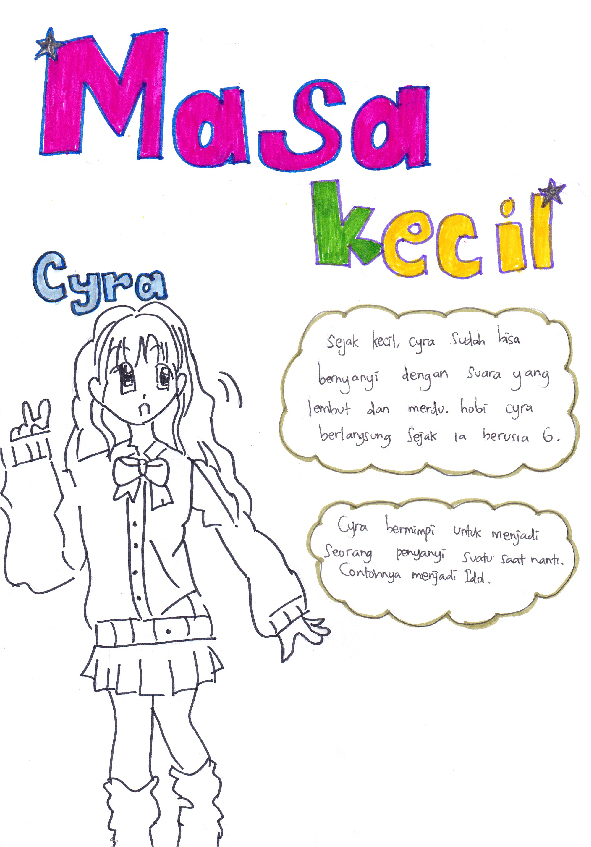 Masa
kecil
Cyra
Sejak kecil, cyra sudah bisa
bernyanyi dengan suara yang
lembut dan merdu. hobi cyra
berlangsung sejak ia berusia 6.
Cyra bermimpi untuk menjadi
seorang penyanyi suatu saat nanti.
Contohnya menjadi Idol.